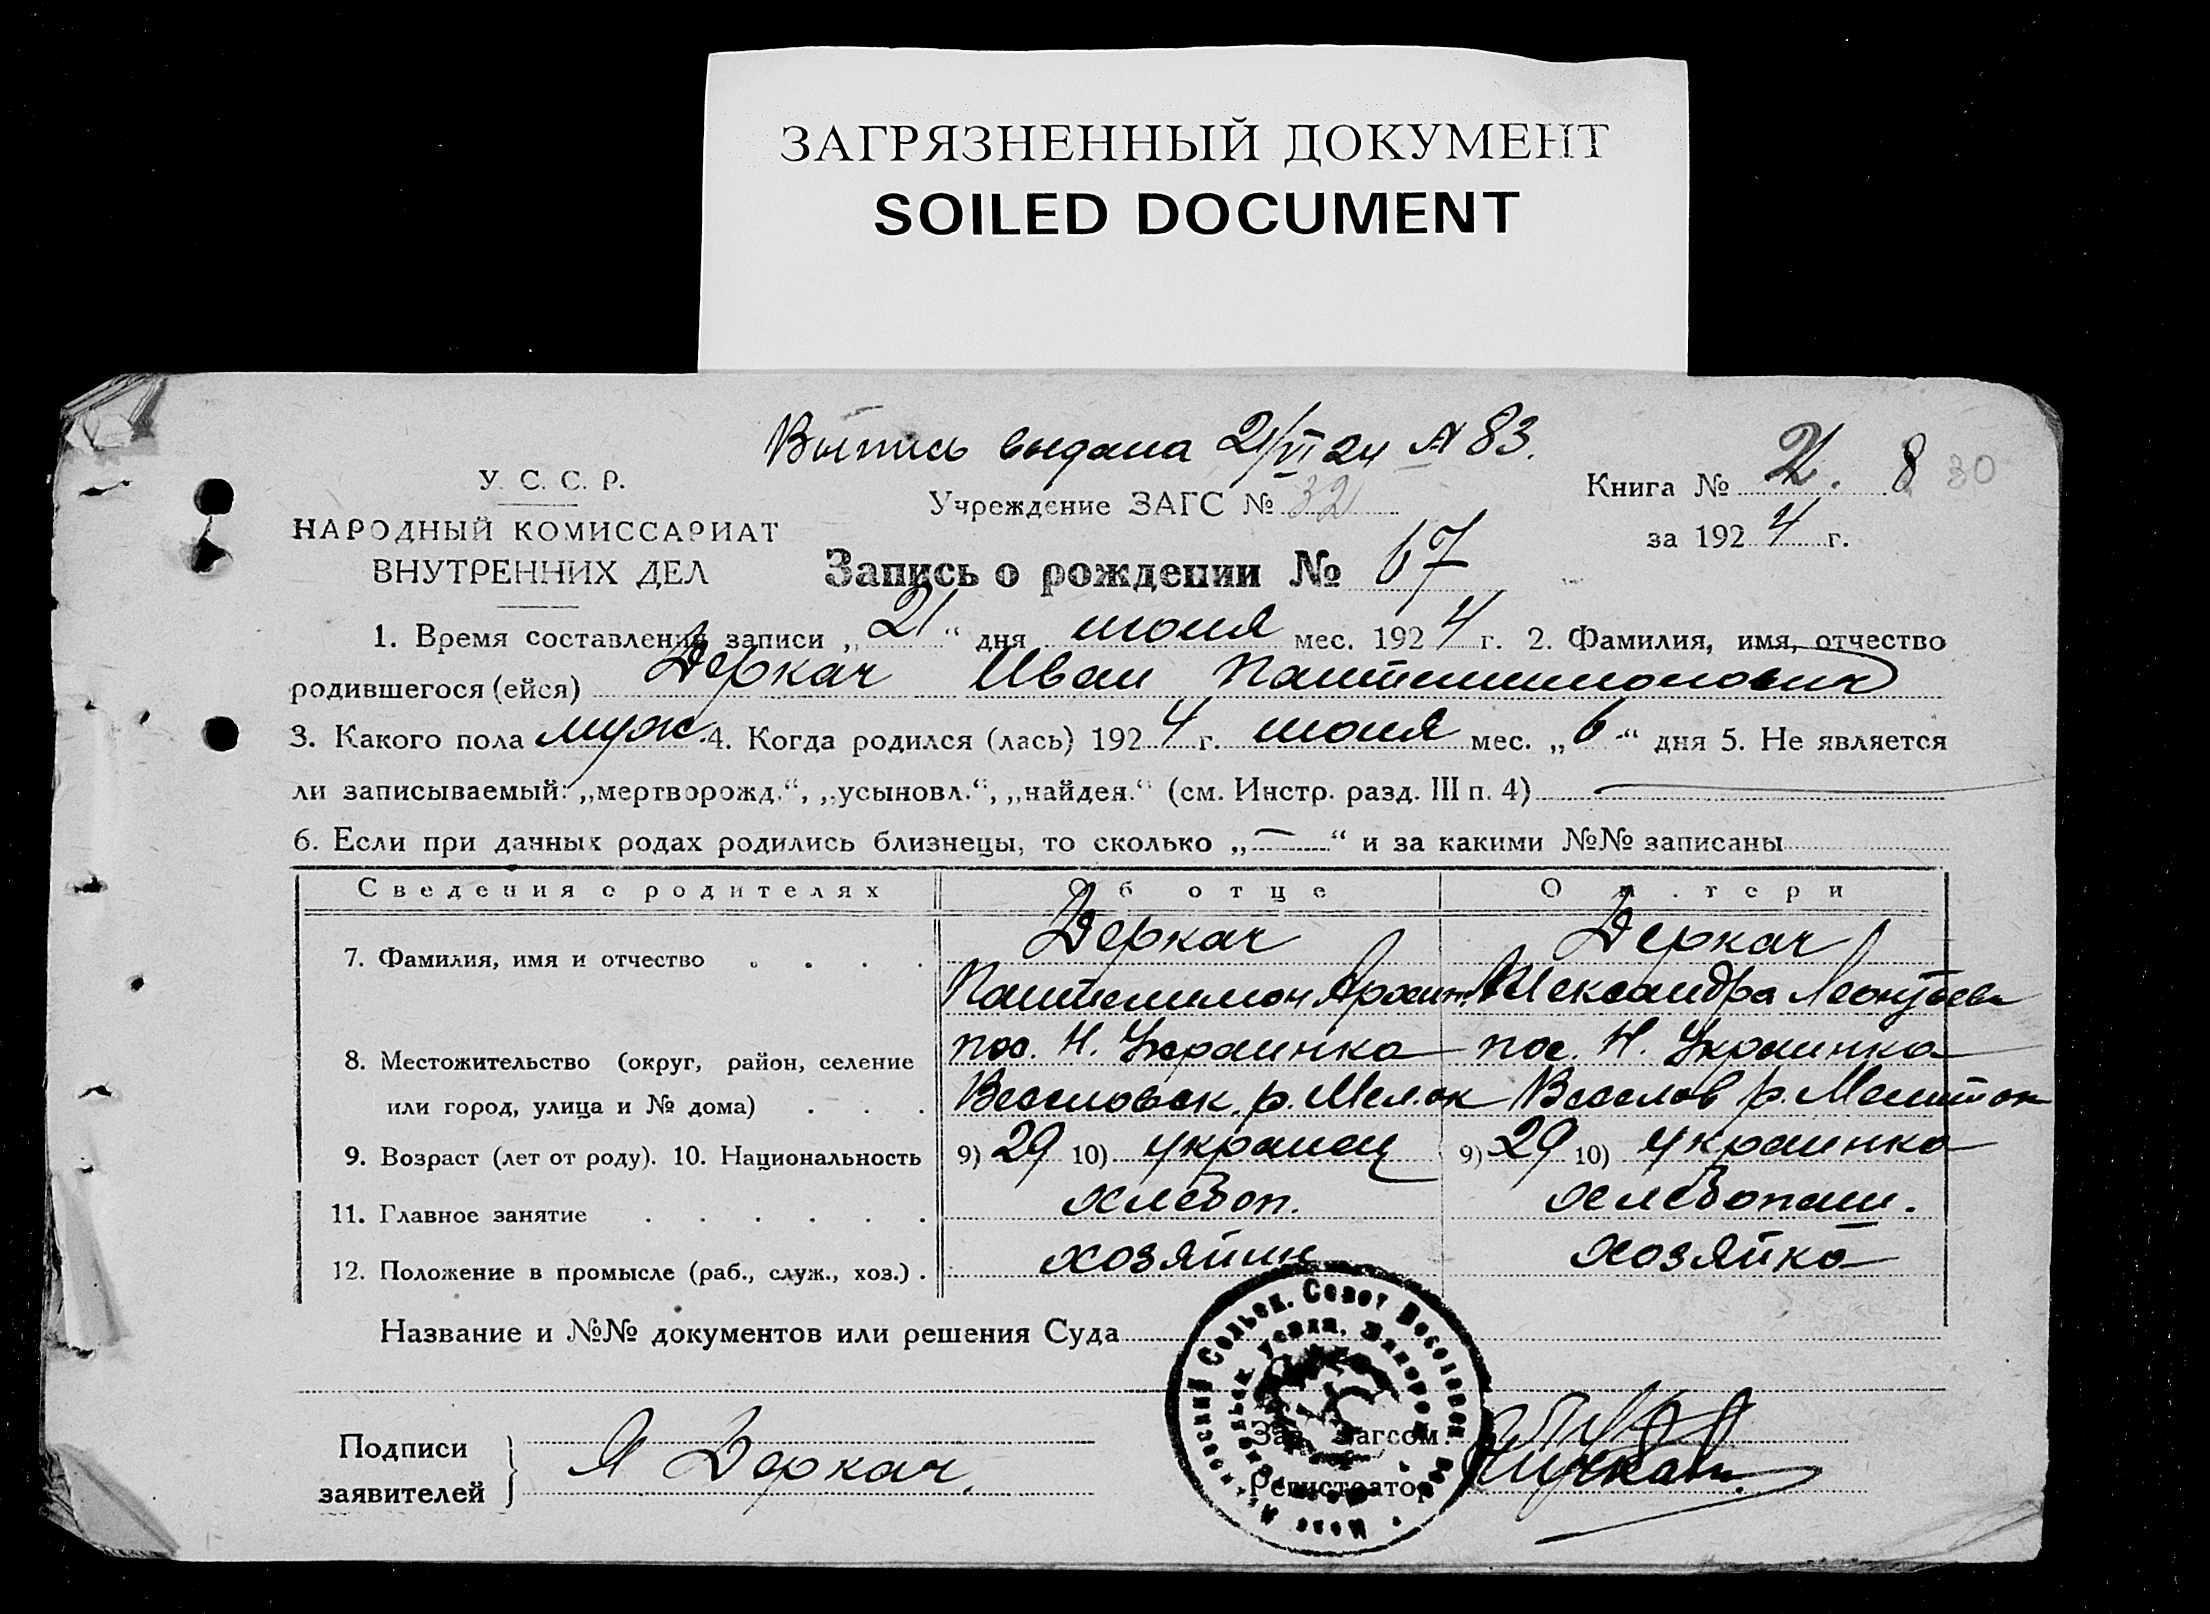 ЗАГРЯЗНЕННЫЙ ДОКУМЕНТ
SOILED DOCUMENT
Выпись выдана 21/VI 24 № 83.
У. С. С. Р.
НАРОДНЫЙ КОМИССАРИАТ
ВНУТРЕННИХ ДЕЛ
Учреждение ЗАГС № 32
Книга № 2. 8 30
за 1924 г.
Запись о рождении № 67
1. Время составления записи „21“ дня июня мес. 1924 г. 2. Фамилия, имя, отчество
родившегося (ейся) Деркач Иван Пантелимонович
3. Какого пола муж. 4. Когда родился (лась) 1924 г. июня мес. „6“ дня 5. Не является
ли записываемый: „мертворожд.“, „усыновл.“, „найден.“ (см. Инстр. разд. III п. 4)
6. Если при данных родах родились близнецы, то сколько „—“ и за какими №№ записаны
Сведения о родителях Об отце О матери
7. Фамилия, имя и отчество Деркач Деркач
Пантелимон Архип. Александра Леонтьев
8. Местожительство (округ, район, селение пос. Н. Украинка пос. Н. Украинка
или город, улица и № дома) Веселовск. р. Мел. ок Веселов р. Мелит ок
9. Возраст (лет от роду). 10. Национальность 9) 29 10) украинец 9) 29 10) украинка
11. Главное занятие хлебоп. хлебопаш.
12. Положение в промысле (раб., служ., хоз.) хозяин хозяйка
Название и №№ документов или решения Суда
Подписи
заявителей
Я Деркач.
Зав. Загсом
Регистратор
Сельск. Совет